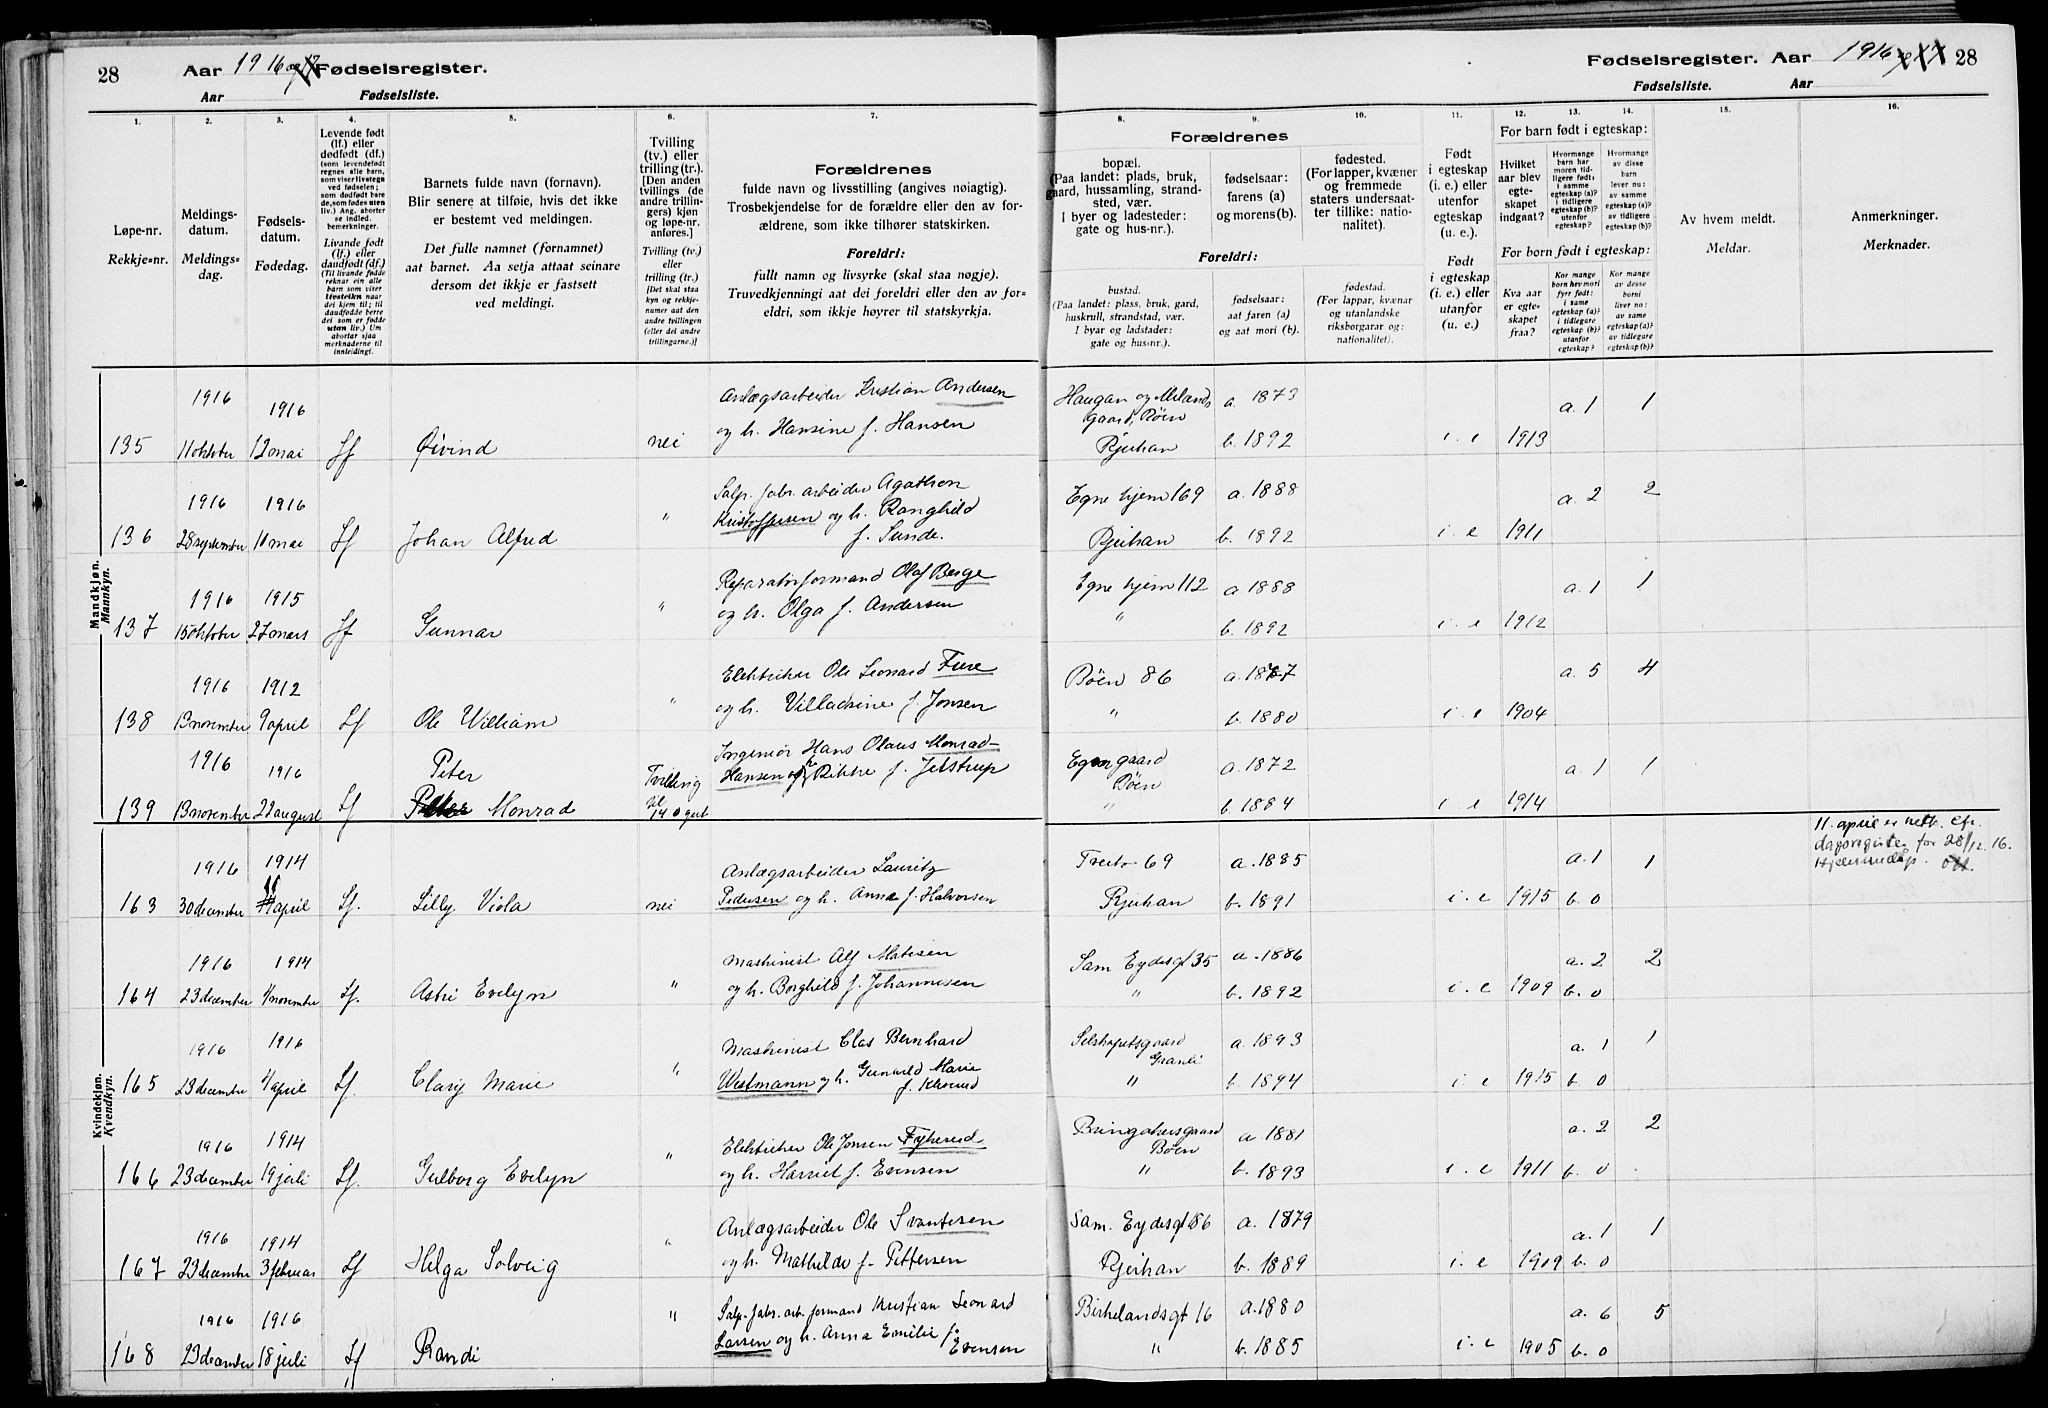 28 Aar 1916 og 17 Fødselsregister.
Aar Fødselsliste.
Fødselsregister. Aar 1916 28
Fødselsliste. Aar
1. 2. 3. 4. 5. 6. 7. 8. 9. 10. 11. 12. 13. 14. 15. 16.
Løpe-nr.
Rekkje-nr.
Meldings-
datum.
Meldings-
dag.
Fødsels-
datum.
Fødedag.
Levende født
(lf.) eller
dødfødt (df.)
(som levendefødt
regnes alle barn,
som viser livstegn
ved fødselen;
som dødfødt bare
de, som fødes uten
liv.) Ang. aborter
se indled.
bemerkninger.
Livande født
(lf.) eller
daudfødt (df.)
(Til livande fødde
reknar ein alle
barn som viser
livsteikn naar
dei kjem til; til
daudfødde berre
dei som er fødde
utan liv.) Um
abortar sjaa
merknaderne til
innleidingi.
Barnets fulde navn (fornavn).
Blir senere at tilføie, hvis det ikke
er bestemt ved meldingen.
Det fulle namnet (fornamnet)
aat barnet. Aa setja attaat seinare
dersom det ikkje er fastsett
ved meldingi.
Tvilling
(tv.) eller
trilling (tr.).
[Den anden
tvillings (de
andre trillin-
gers) kjøn
og løpe-nr.
anføres.]
Tvilling (tv.)
eller
trilling (tr.)
[Det skal staa
kyn og rekkje-
numer aat den
andre tvillingen
(eller dei andre
trillingarne.)]
Forældrenes
fulde navn og livsstilling (angives nøiagtig).
Trosbekjendelse for de forældre eller den av for-
ældrene, som ikke tilhører statskirken.
Foreldri:
fullt namn og livsyrke (skal staa nøgje).
Truvedkjenningi aat dei foreldri eller den av for-
eldri, som ikkje høyrer til statskyrkja.
Forældrenes
bopæl.
(Paa landet: plads, bruk,
gaard, hussamling, strand-
sted, vær.
I byer og ladesteder:
gate og hus-nr.).
fødselsaar:
farens (a)
og morens (b).
fødested.
(For lapper, kvæner
og fremmede
staters undersaat-
ter tillike: natio-
nalitet).
Foreldri:
bustad.
(Paa landet: plass, bruk, gard,
huskrull, strandstad, vær.
I byar og ladstader:
gate og hus-nr.).
fødselsaar:
aat faren (a)
og aat mori (b).
fødestad.
(For lappar, kvænar
og utanlandske
riksborgarar og:
nationalitet.)
Født
i egteskap
(i. e.) eller
utenfor
egteskap
(u. e.).
Født
i egteskap
(i. e.) eller
utanfor
(u. e.)
For barn født i egteskap:
Hvilket
aar blev
egte-
skapet
indgaat?
Hvormange
barn har
moren tid-
ligere født:
i samme
egteskap (a)?
i tidligere
egteskap (b)?
utenfor
egteskap?
Hvormange
av disse
barn
lever nu:
av samme
egteskap (a)?
av tidligere
egteskap (b)?
For born født i egteskap:
Kva aar
er egte-
skapet
fraa?
Kor mange
born hev mori
fyrr født:
i same
egteskap (a)?
i tidlegare
egteskap (b)?
utanfor
egteskap?
Kor mange
av desse
borni
liver no:
av same
egteskap (a)?
av tidlegare
egteskap (b)?
Av hvem meldt.
Meldar.
Anmerkninger.
Merknader.
Mandkjøn.
Mannkyn.
135 1916 11 oktober 1916 12 mai Lf Øivind nei Anlægsarbeider Kristian Andersen
og h. Hansine f. Hansen Haugan og Mælands
gaard, Bøen
Rjukan a. 1873 b. 1892 i. e 1913 a. 1 1
136 1916 28 september 1916 11 mai Lf Johan Alfred " Salp. fabr. arbeider Agathon
Kristoffersen og h. Ranghild
f. Sunde. Egne hjem 169
Rjukan a. 1888 b. 1892 i. e 1911 a. 2 2
137 1916 15 oktober 1915 27 mars Lf Gunnar " Reparatørformand Olaf Berge
og h. Olga f. Andersen Egne hjem 112
" a 1888 b. 1892 i. e 1912 a. 1 1
138 1916 13 november 1912 9 april Lf Ole William " Elektriker Ole Leonard Fure
og h. Villadsine f. Jonsen Bøen 86
" a. 1877 b. 1880 i. e 1904 a. 5 4
139 1916 13 november 1916 21 august Lf Peter
Monrad Tvilling
til
140 gut Ingeniør Hans Olaus Monrad-
Hansen og h Rikke f. Jelstrup Egnergaard
Bøen
" a. 1872 b. 1884 i. e 1914 a. 1 1
Kvindekjøn.
Kvendkyn.
163 1916 30 december 1914 11 april Lf. Lilly Viola nei Anlægsarbeider Lauritz
Pedersen og h. Anna f. Halvorsen Tveito 69
Rjukan a. 1885 b. 1891 i. e 1915 a. 1 b. 0 1 11. april er rett. Cfr.
dagsregister for 28/12 16.
164 1916 23 december 1914 4 november Lf. Astri Evelyn " Maskinist Alf Matisen
og h. Borghild f. Johannesen Sam Eydesgt 35
" a. 1886 b. 1892 i. e 1909 a. 2 b. 0 2
165 1916 23 december 1916 4 april Lf. Clary Marie " Maskinist Clas Bernhard
Westmann og h. Gunvild Marie Selskapetsgaard
Granli
" a. 1893 b. 1894 i. e 1915 a. 1 b. 0 1
166 1916 23 december 1914 19 juli Lf. Gulborg Evelyn " Elektriker Ole Jonsen Fykerud
og h. Harriet f. Evensen Bringakersgaard
Bøen
" a. 1881 b. 1893 i. e 1911 a. 2 b. 0 2
167 1916 23 december 1914 3 februar Lf Helga Solveig " Anlægsarbeider Ole Svantesen
og h. Mathilde f. Pettersen Sam. Eydesgt 86
Rjukan a. 1879 b. 1889 i. e 1909 a. 1 b. 0 1
168 1916 23 december 1916 18 juli Lf Randi " Salp. fabr. arb. formand Kristian Leonard
Larsen og h. Anna Emilie f.
Evensen Birkelandsgt 16
" a. 1880 b. 1885 i. e 1905 a. 6 b. 0 5